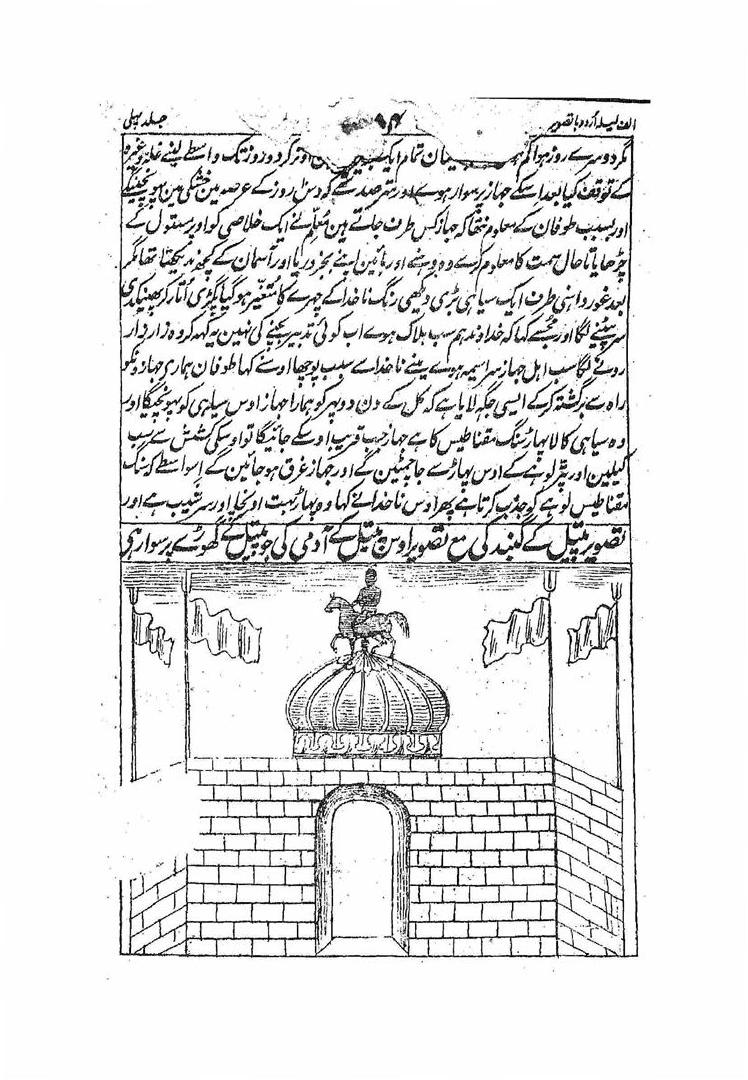 الف لیلہ اردو با تصویر ۹۴ جلد پہلی
مگر دوسرے روز ہوا تمام ایک اوتر کر دو روز تک واسطے لینے غلہ وغیرہ
کے توقف کیا بعد اسکے جہاز پر سوار ہوے اور مترصد تھے کہ دس روز کے عرصہ مین خشکی مین پہونچینگے
اور بسبب طوفان کے معلوم نتھا کہ جہاز کس طرف جاتے ہین معلم نے ایک خلاصی کو اوپر مستول کے
چڑھایا تا حال سمت کا معلوم کرے وہ دہنے اور بائین اپنے بجز دریا اور آسمان کے کچھ ندیکھتا تھا مگر
بعد غور داہنی طرف ایک سیاہی بڑی دیکھی رنگ ناخدا کے چہرے کا متغیر ہو گیا پگڑی اُتار کر پھینکدی
سر پیٹنے لگا اور مجھسے کہا کہ خداوند ہم سب ہلاک ہوے اب کوئی تدبیر بچنے کی نہین یہ کہہ کر وہ زار زار
رونے لگا سب اہل جہاز سراسیمہ ہوے مینے ناخدا سے سبب پوچھا اوسنے کہا طوفان ہماری جہازونکو
راہ سے برگشتہ کر کے ایسی جگہ لایا ہے کہ کل کے دن دوپہر کو ہمارا جہاز اوس سیاہی کو پہونچیگا اور
وہ سیاہی کالا پہاڑ سنگ مقناطیس کا ہے جہاز جب قریب اوسکے جائیگا تو اوسکی کشش سے سب
کیلین اور پتر لوہے کے اوس پہاڑ سے جا چمٹین گے اور جہاز غرق ہو جائین گے اسواسطے کہ سنگ
مقناطیس لوہے کو جذب کرتا ہے پھر اوس ناخدا نے کہا وہ پہاڑ بہت اونچا اور سر شیب ہے اور
تصویر پیتل کے گنبد کی مع تصویر اوس پیتل کے آدمی کی جو پیتل کے گھوڑے پر سوار ہی